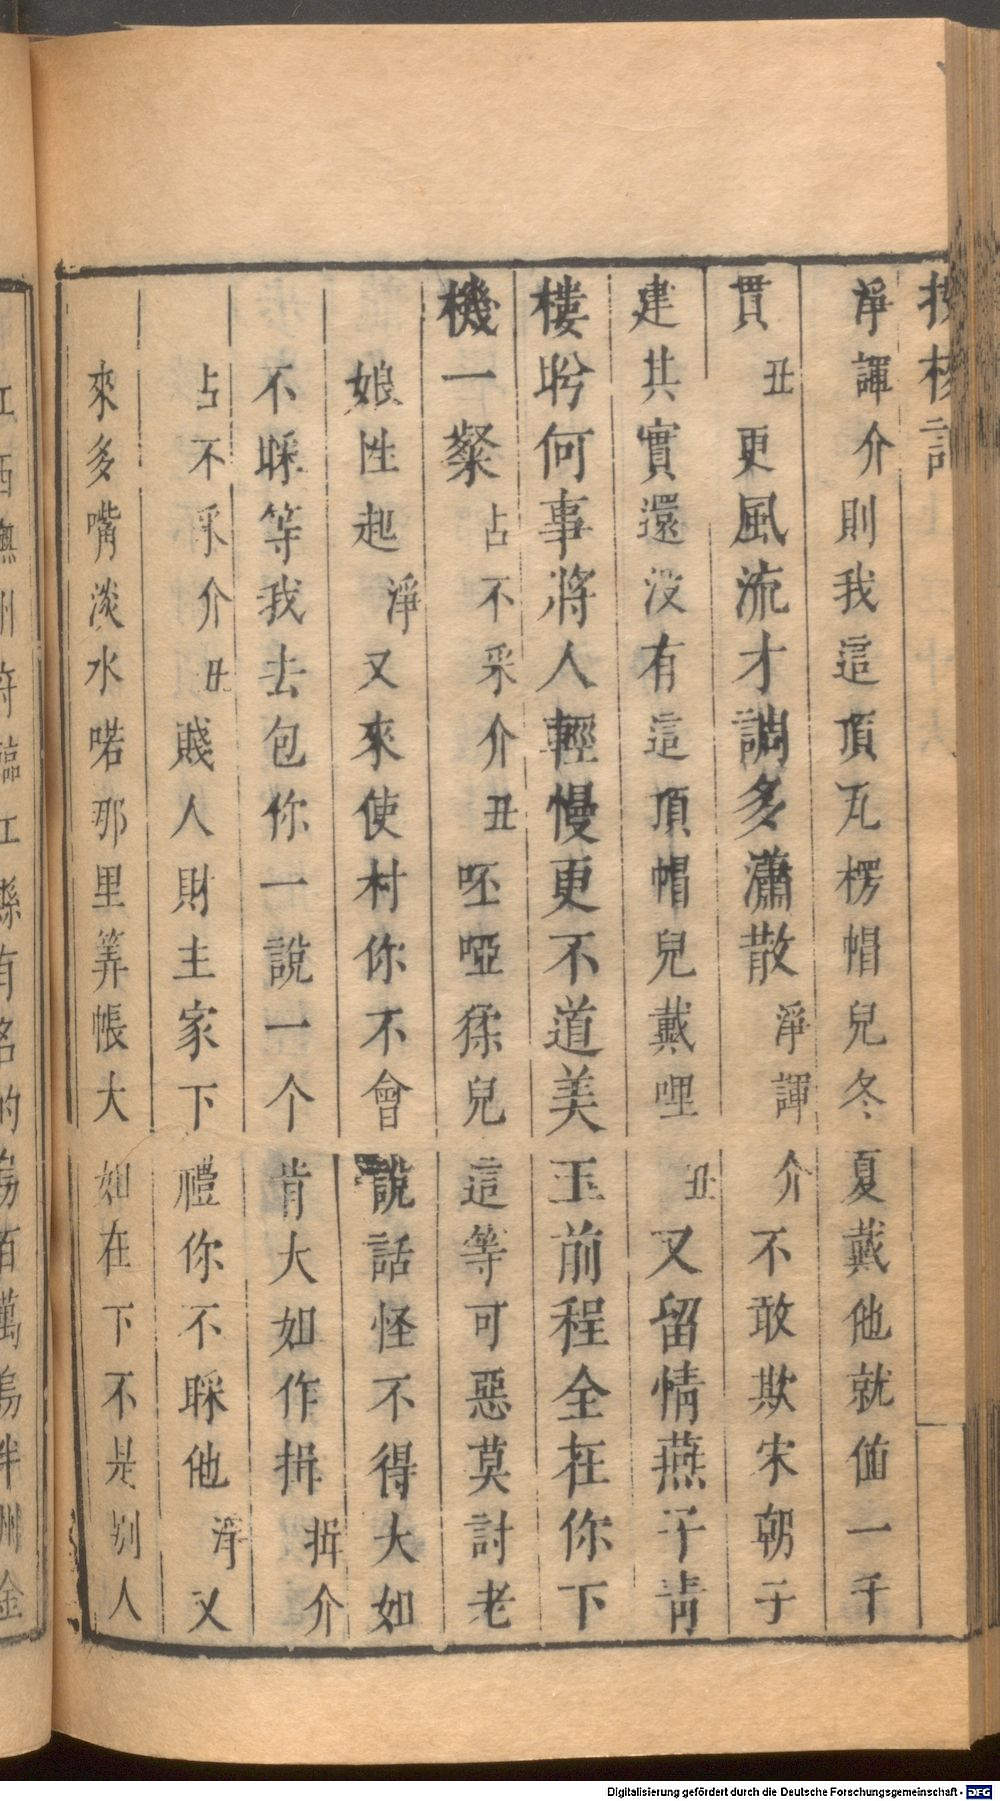 淨諢介則我這頂瓦楞帽兒冬夏戴他就值一千
貫丑更風流才調多瀟散淨諢介不敢欺宋朝子
建其實還没有這頂帽兒戴哩丑又留情燕子靑
樓盻何事將人輕慢更不道美玉前程全在你下
機一粲占不采介丑呸啞猱兒這等可惡莫討老
娘性起淨又來使村你不會說話怪不得大如
不睬等我去包你一說一个肯大如作揖揖介
占不采介丑賤人財主家下禮你不睬他淨又
來多嘴淡水喏那里筭帳大如在下不是別人
Digitalisierung gefördert durch die Deutsche Forschungsgemeinschaft - DFG